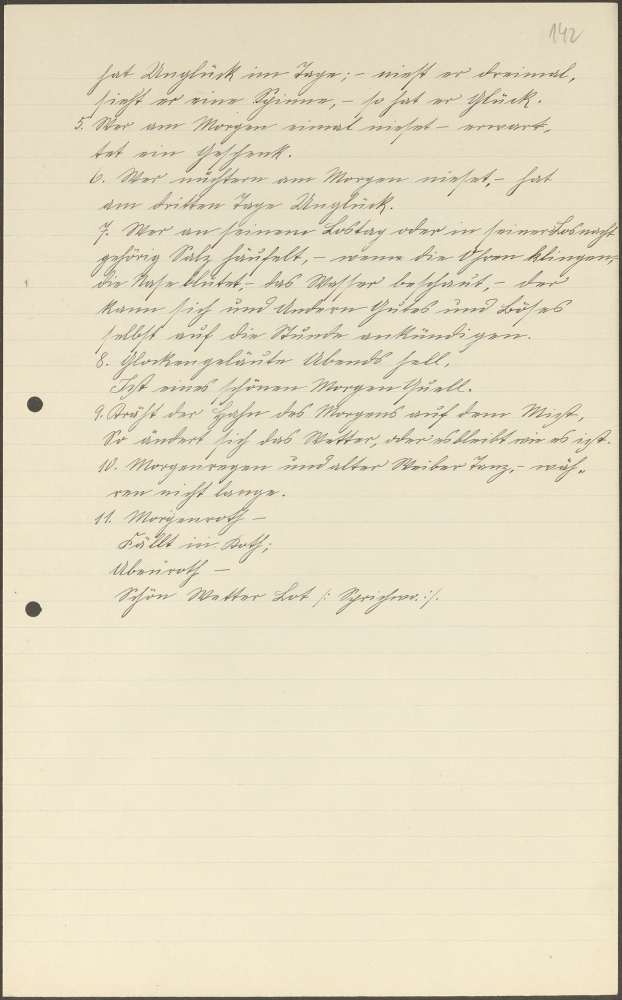 142
hat Unglück im Tage; - niest er dreimal,
sieht er eine Spinne, - so hat er Glück.
5. Wer am Morgen einmal nieset - erwart-
tet ein Geschenk.
6. Wer nüchtern am Morgen nieset, - hat
am dritten Tage Unglück.
7. Wer an seinem Lostag oder in seiner Losnacht
gehörig Salz häufelt, - wenn die Ohren klingen,
die Nase blutet, - das Wasser beschaut, - der
kann sich und Andern Gutes und Böses
selbst auf die Stunde ankündigen.
8. Glockengeläute Abends hell,
Ist eines schönen Morgen Quell.
9. Kräht der Hahn des Morgens auf dem Mist,
So ändert sich das Wetter, oder es bleibt wie es ist.
10. Morgenregen und alter Weiber Tanz, - wäh-
ren nicht lange.
11. Morgenroth -
Fällt in Koth;
Abenroth -
Schön Wetter Bot /: Sprichw. :/.